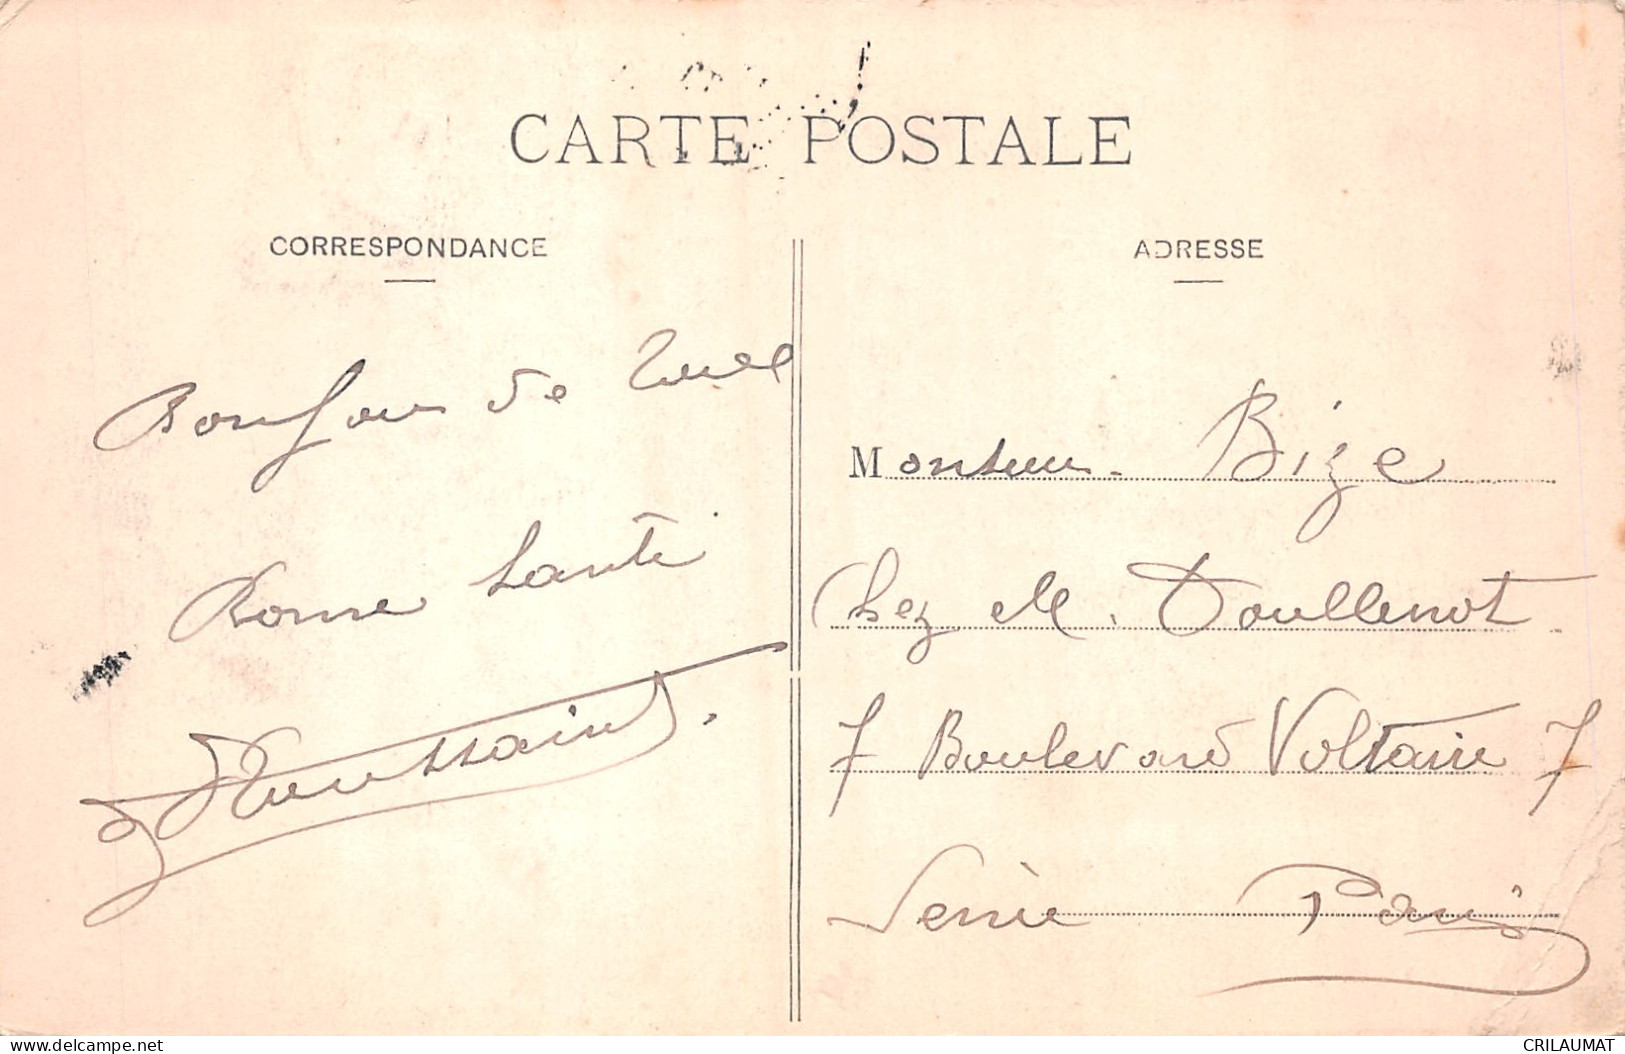 CARTE POSTALE
CORRESPONDANCE
Bonjour de
Bonne Santé
Toussaint.
ADRESSE
Monsieur Bize
Chez M. Doullenot
7 Boulevard Voltaire 7
Paris
CRILAUMAT